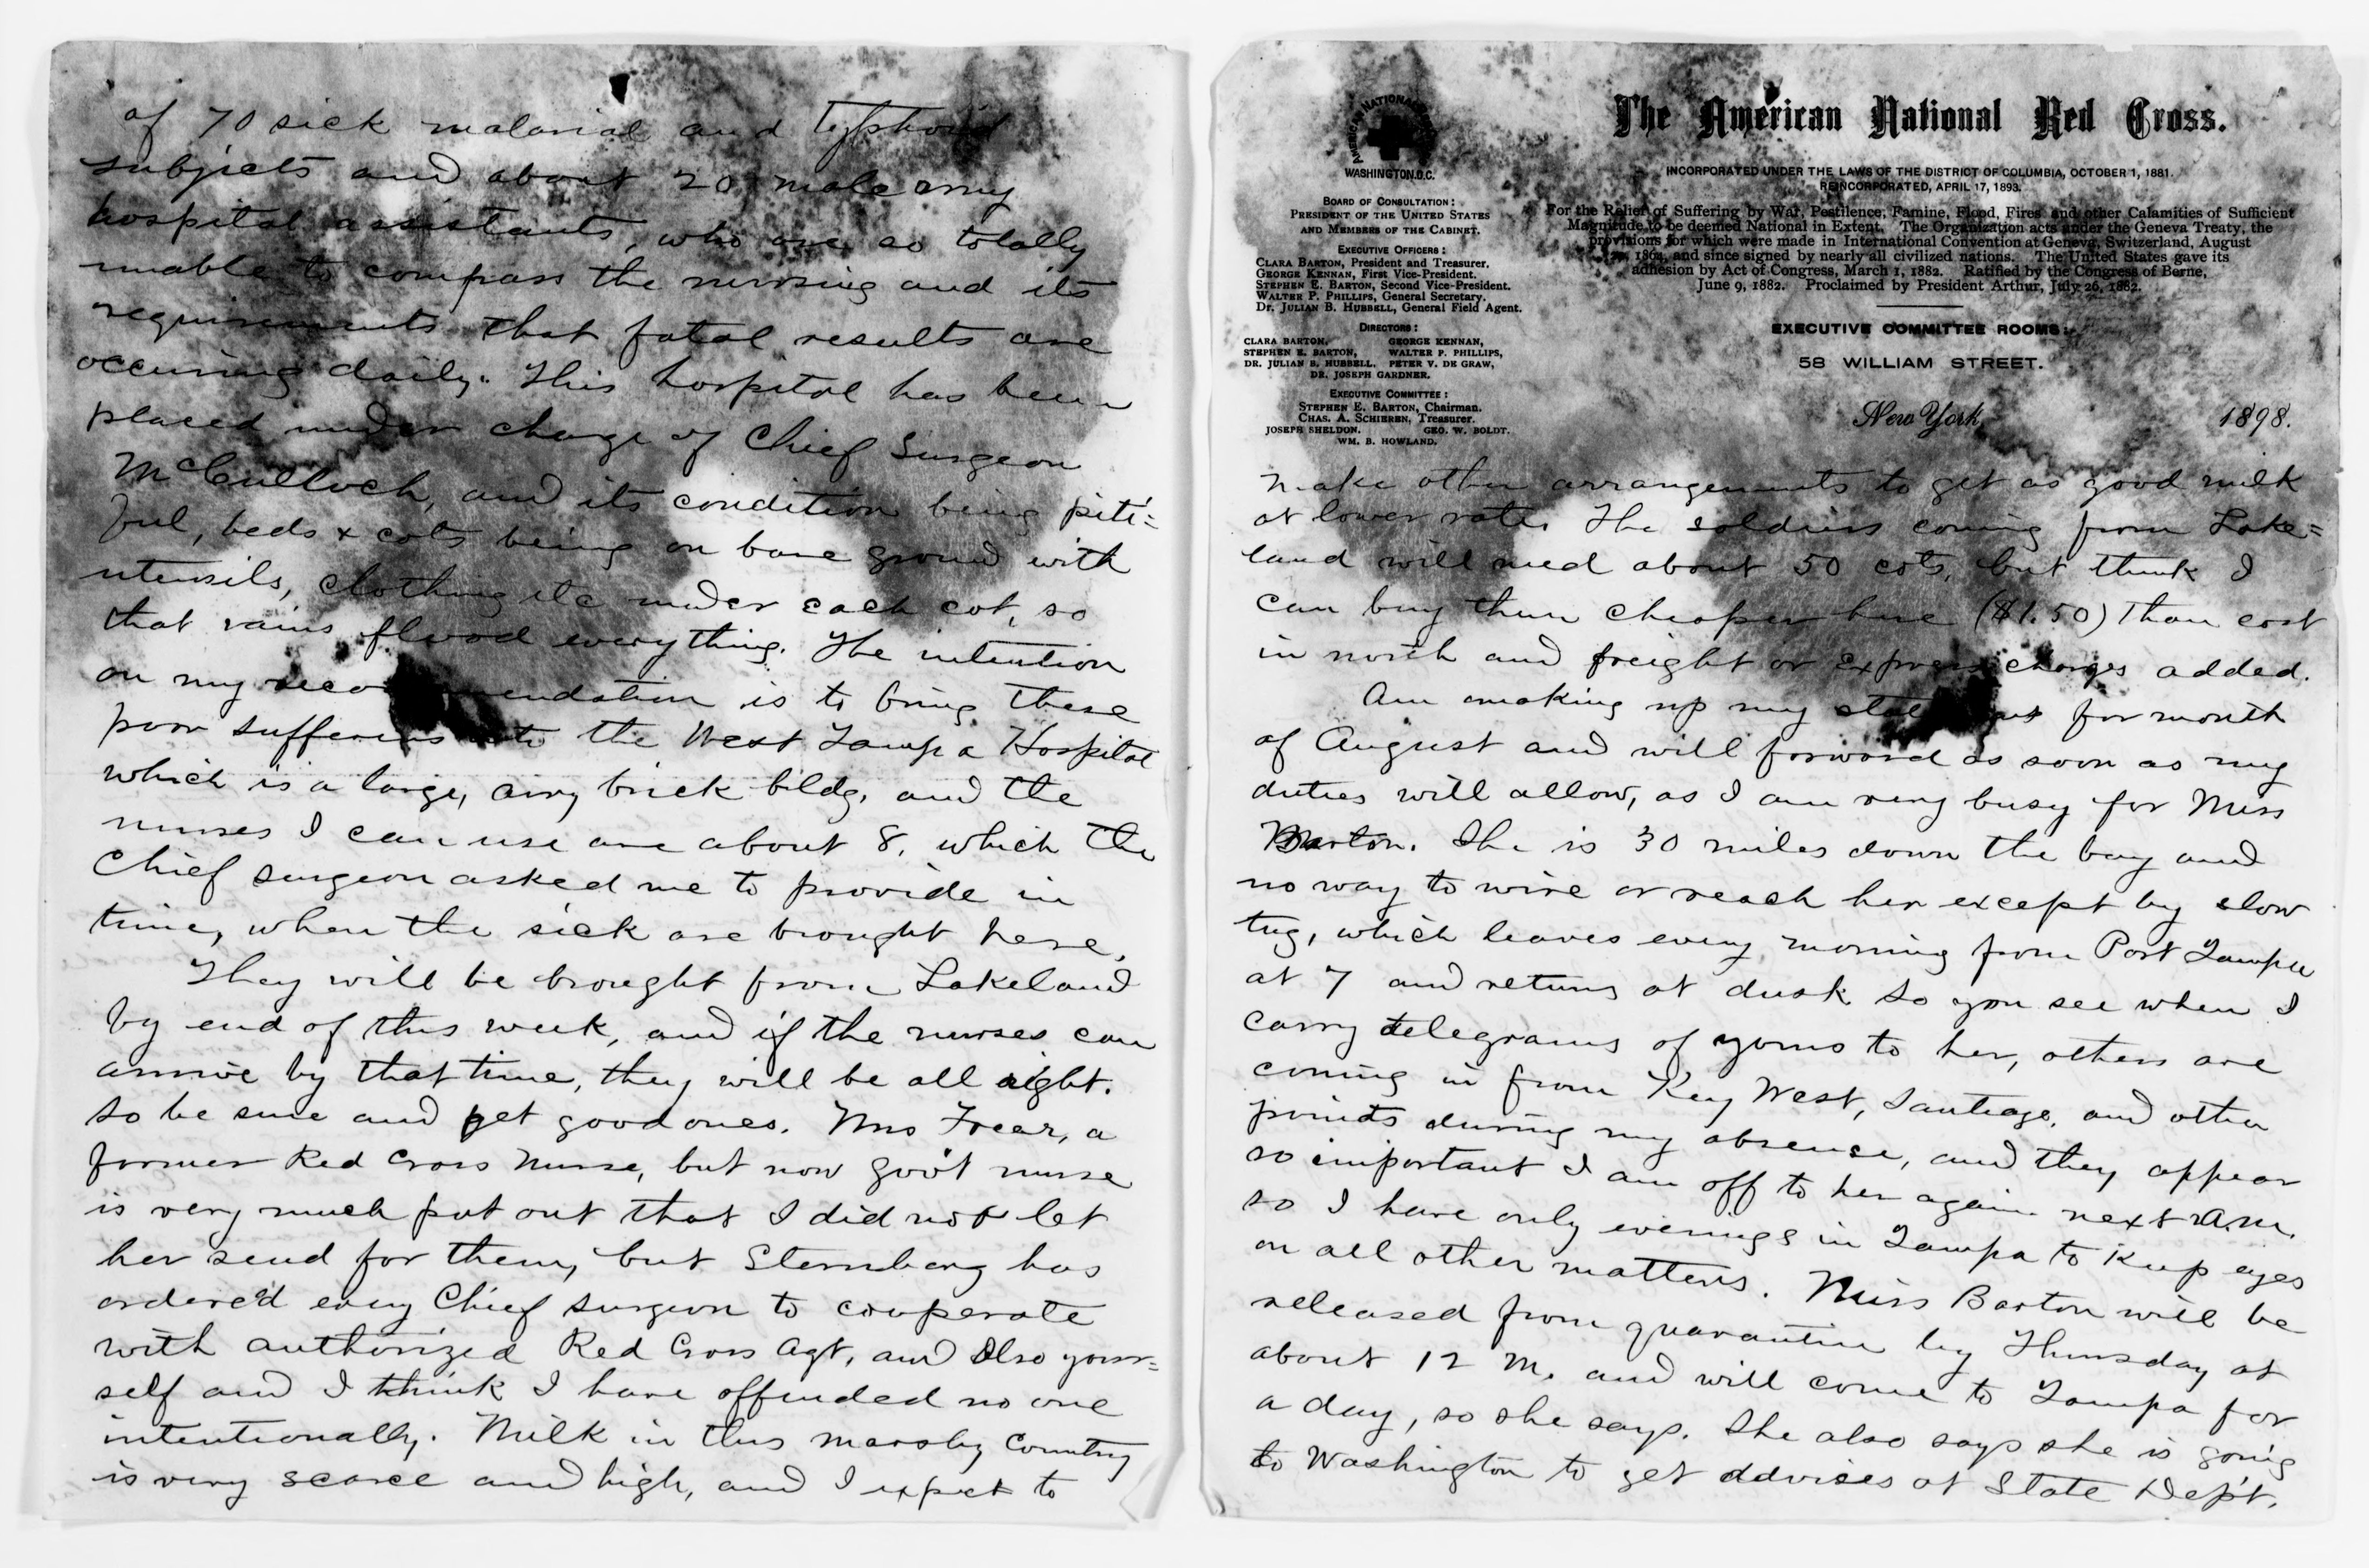 of 70 sick malarial and typhoid
subjects and about 20 male army
hospital assistants, who are so totally
unable to compass the nursing and its
requirements that fatal results are
occuring daily. This hospital has been
placed under charge of Chief Surgeon
McCulloch, and its condition being piti=
ful, beds & cots being on bare ground with
utensils, clothing etc under each cot, so
that rains flood everything. The intention
on my reco endation is to bring these
poor sufferers to the West Tampa Hospital
which is a large, airy brick bldg, and the
nurses I can use are about 8, which the
Chief surgeon asked me to provide in
time, when the sick are brought here.
They will be brought from Lakeland
by end of this week, and if the nurses can
arrive by that time, they will be all right.
So be sure and get good ones. Mrs Freer, a
former Red Cross Nurse, but now gov't nurse
is very much put out that I did not let
her send for them, but Sternberg has
ordered every Chief surgeon to cooperate
with authorized Red Cross Agt, and also your=
self and I think I have offended no one
intentionally. Milk in this marshy country
is very scarce and high, and I expect to
AMERICAN NATIONAL
WASHINGTON, D.C.
The American National Red Cross.
INCORPORATED UNDER THE LAWS OF THE DISTRICT OF COLUMBIA, OCTOBER 1, 1881.
REINCORPORATED, APRIL 17, 1893.
For the Relief of Suffering by War, Pestilence, Famine, Flood, Fires and other Calamities of Sufficient
Magnitude to be deemed National in Extent. The Organization acts under the Geneva Treaty, the
provisions for which were made in International Convention at Geneva, Switzerland, August
22, 1864, and since signed by nearly all civilized nations. The United States gave its
adhesion by Act of Congress, March 1, 1882. Ratified by the Congress of Berne,
June 9, 1882. Proclaimed by President Arthur, July 26, 1882.
BOARD OF CONSULTATION:
PRESIDENT OF THE UNITED STATES
AND MEMBERS OF THE CABINET.
EXECUTIVE OFFICERS:
CLARA BARTON, President and Treasurer.
GEORGE KENNAN, First Vice-President.
STEPHEN E. BARTON, Second Vice-President.
WALTER P. PHILLIPS, General Secretary.
DR. JULIAN B. HUBBELL, General Field Agent.
DIRECTORS:
CLARA BARTON, GEORGE KENNAN,
STEPHEN E. BARTON, WALTER P. PHILLIPS,
DR. JULIAN B. HUBBELL, PETER V. DE GRAW,
DR. JOSEPH GARDNER.
EXECUTIVE COMMITTEE:
STEPHEN E. BARTON, Chairman.
CHAS. A. SCHIEREN, Treasurer.
JOSEPH SHELDON. GEO. W. BOLDT.
WM. B. HOWLAND.
EXECUTIVE COMMITTEE ROOMS:
58 WILLIAM STREET.
New York 1898.
make other arrangements to get as good milk
at lower rates. The soldiers coming from Lake=
land will need about 50 cots, but think I
can buy them cheaper here ($1.50) than cost
in north and freight or express charges added.
Am making up my stat nt for month
of August and will forward as soon as my
duties will allow, as I am very busy for Miss
Barton. She is 30 miles down the bay and
no way to wire or reach her except by slow
tug, which leaves every morning from Port Tampa
at 7 and returns at dusk so you see when I
carry telegrams of yours to her, others are
coming in from Key West, Santiago, and other
points during my absence, and they appear
so important I am off to her again next a.m.
so I have only evenings in Tampa to keep eyes
on all other matters. Miss Barton will be
released from quarantine by Thursday at
about 12 M. and will come to Tampa for
a day, so she says. She also says she is going
to Washington to get advices at State Dep't.